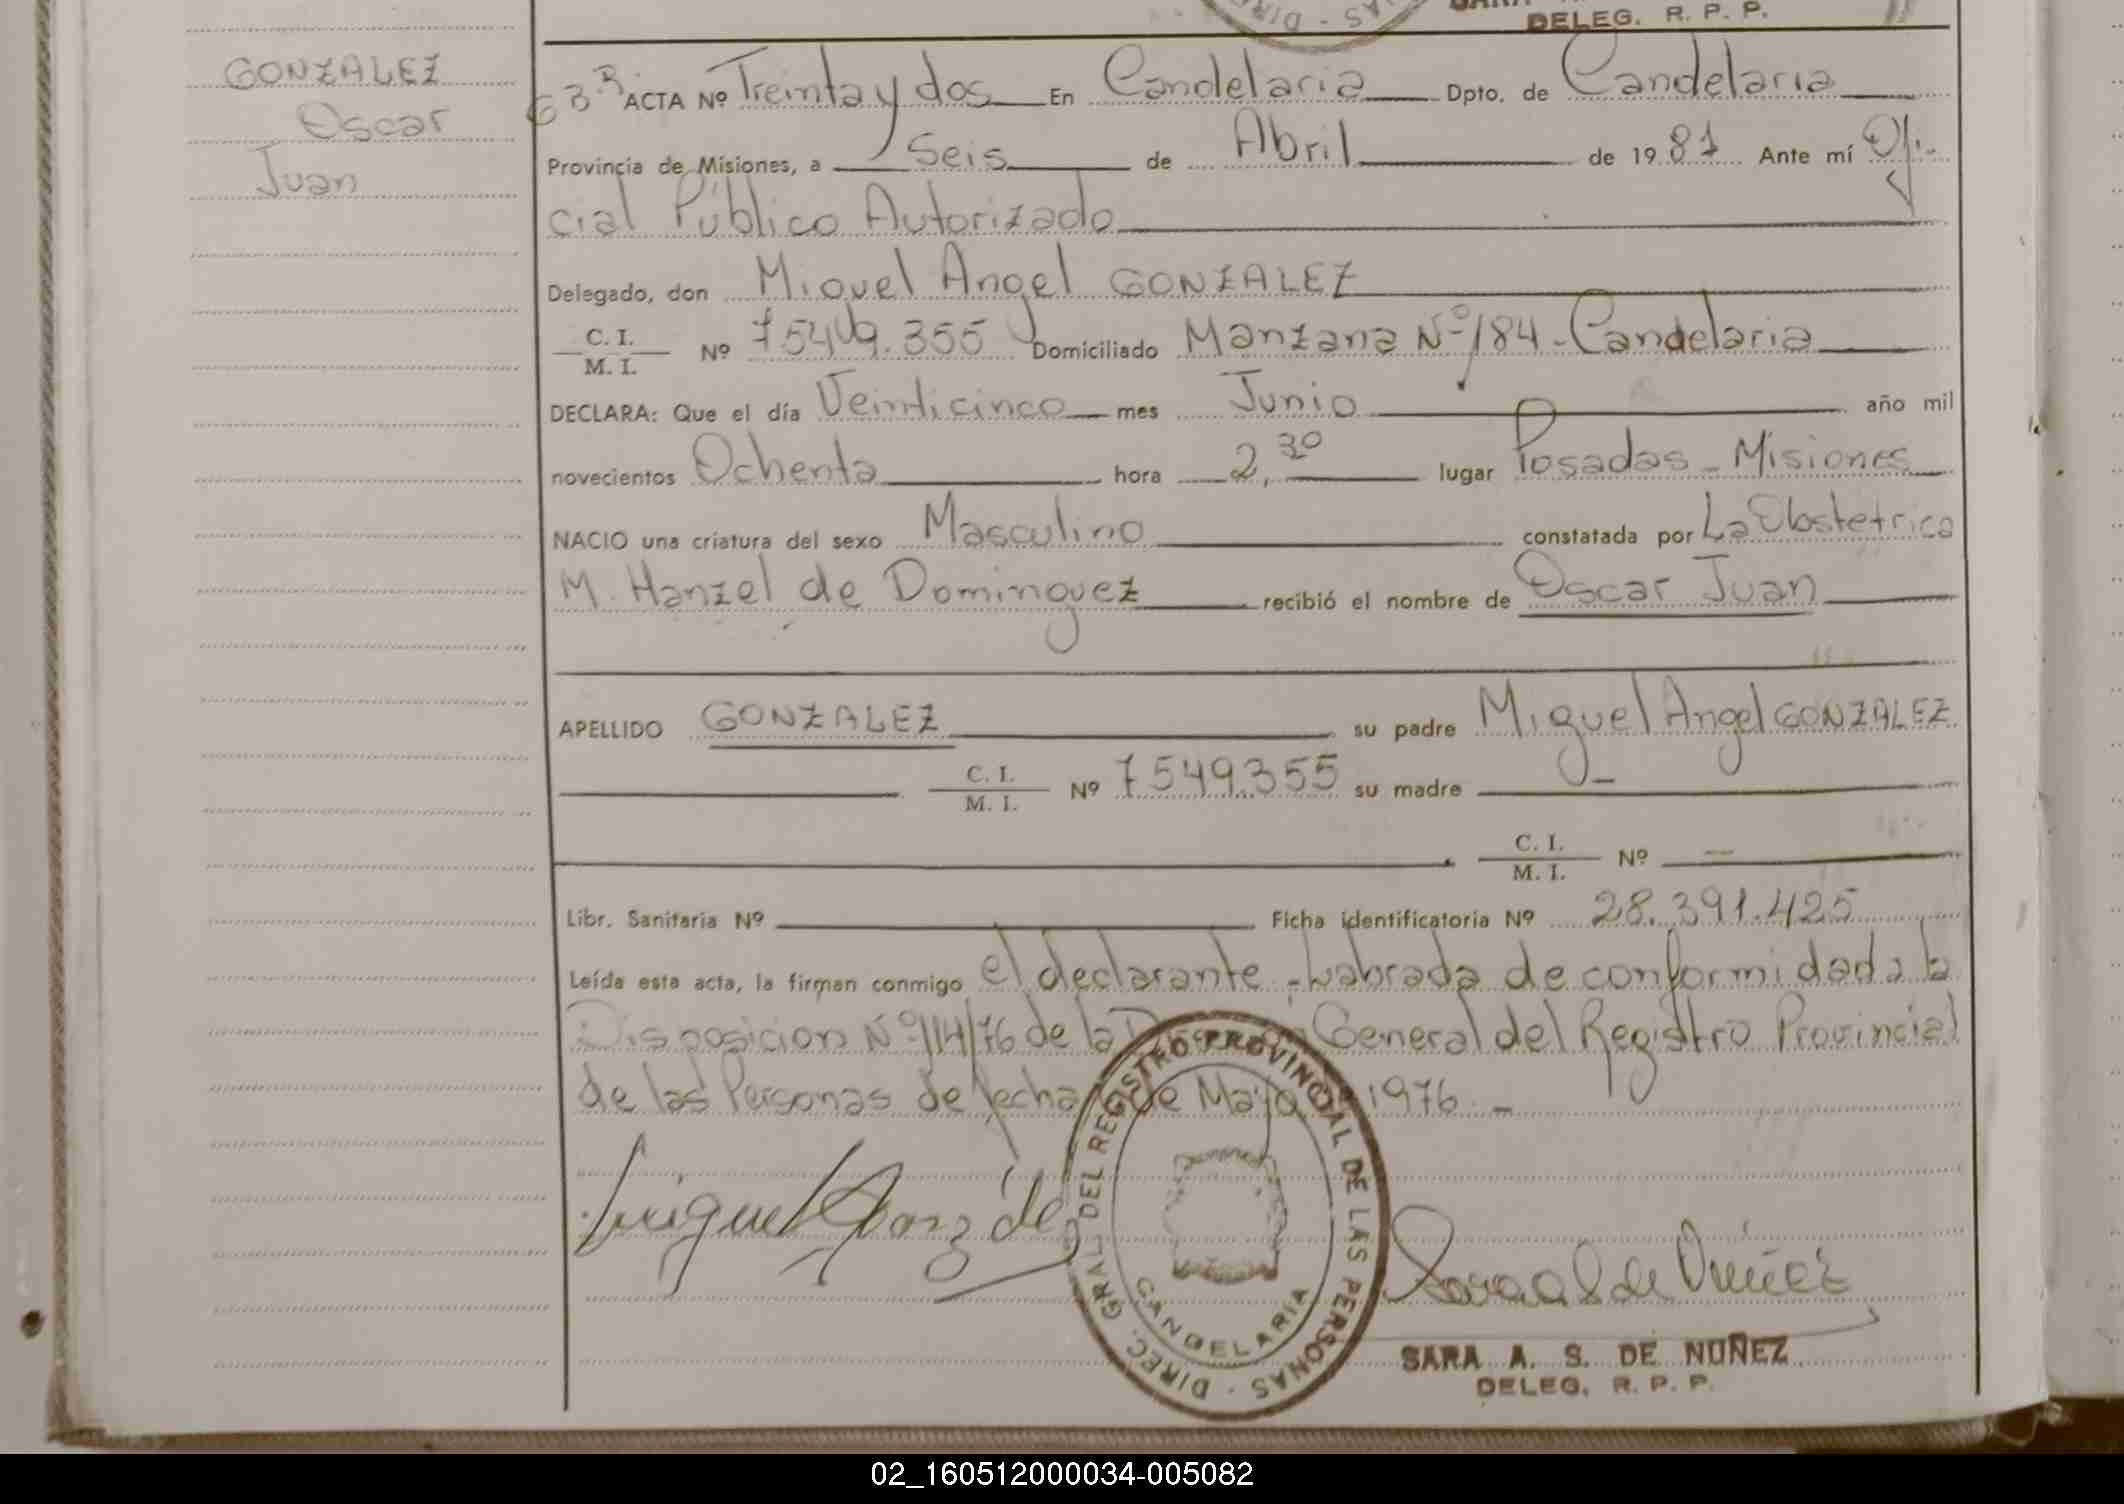 DELEG. R. P. P.
GONZALEZ
Oscar
Juan
63 ACTA Nº Treinta y dos En Candelaria Dpto. de Candelaria
Provincia de Misiones, a Seis de Abril de 1981 Ante mí Ofi-
cial Público Autorizado
Delegado, don Miguel Angel GONZALEZ
C. I.
M. I. Nº 7549.355 Domiciliado Manzana Nº 184 - Candelaria
DECLARA: Que el día Veinticinco mes Junio año mil
novecientos Ochenta hora 2,30 lugar Posadas - Misiones
NACIO una criatura del sexo Masculino constatada por La Obstetrica
M. Hanzel de Dominguez recibió el nombre de Oscar Juan
APELLIDO GONZALEZ su padre Miguel Angel GONZALEZ
C. I.
M. I. Nº 7549.355 su madre
C. I.
M. I. Nº —
Libr. Sanitaria Nº Ficha identificatoria Nº 28.391.425
Leída esta acta, la firman conmigo el declarante.- Labrada de conformidad a la
Disposicion Nº 114/76 de la General del Registro Provincial
de las Personas de fecha de Mayo 1976.-
Miguel Gonzalez
DIREC. GRAL. DEL REGISTRO PROVINCIAL DE LAS PERSONAS -
CANDELARIA
Sara S de Núñez
SARA A. S. DE NUÑEZ
DELEG. R. P. P.
02_160512000034-005082